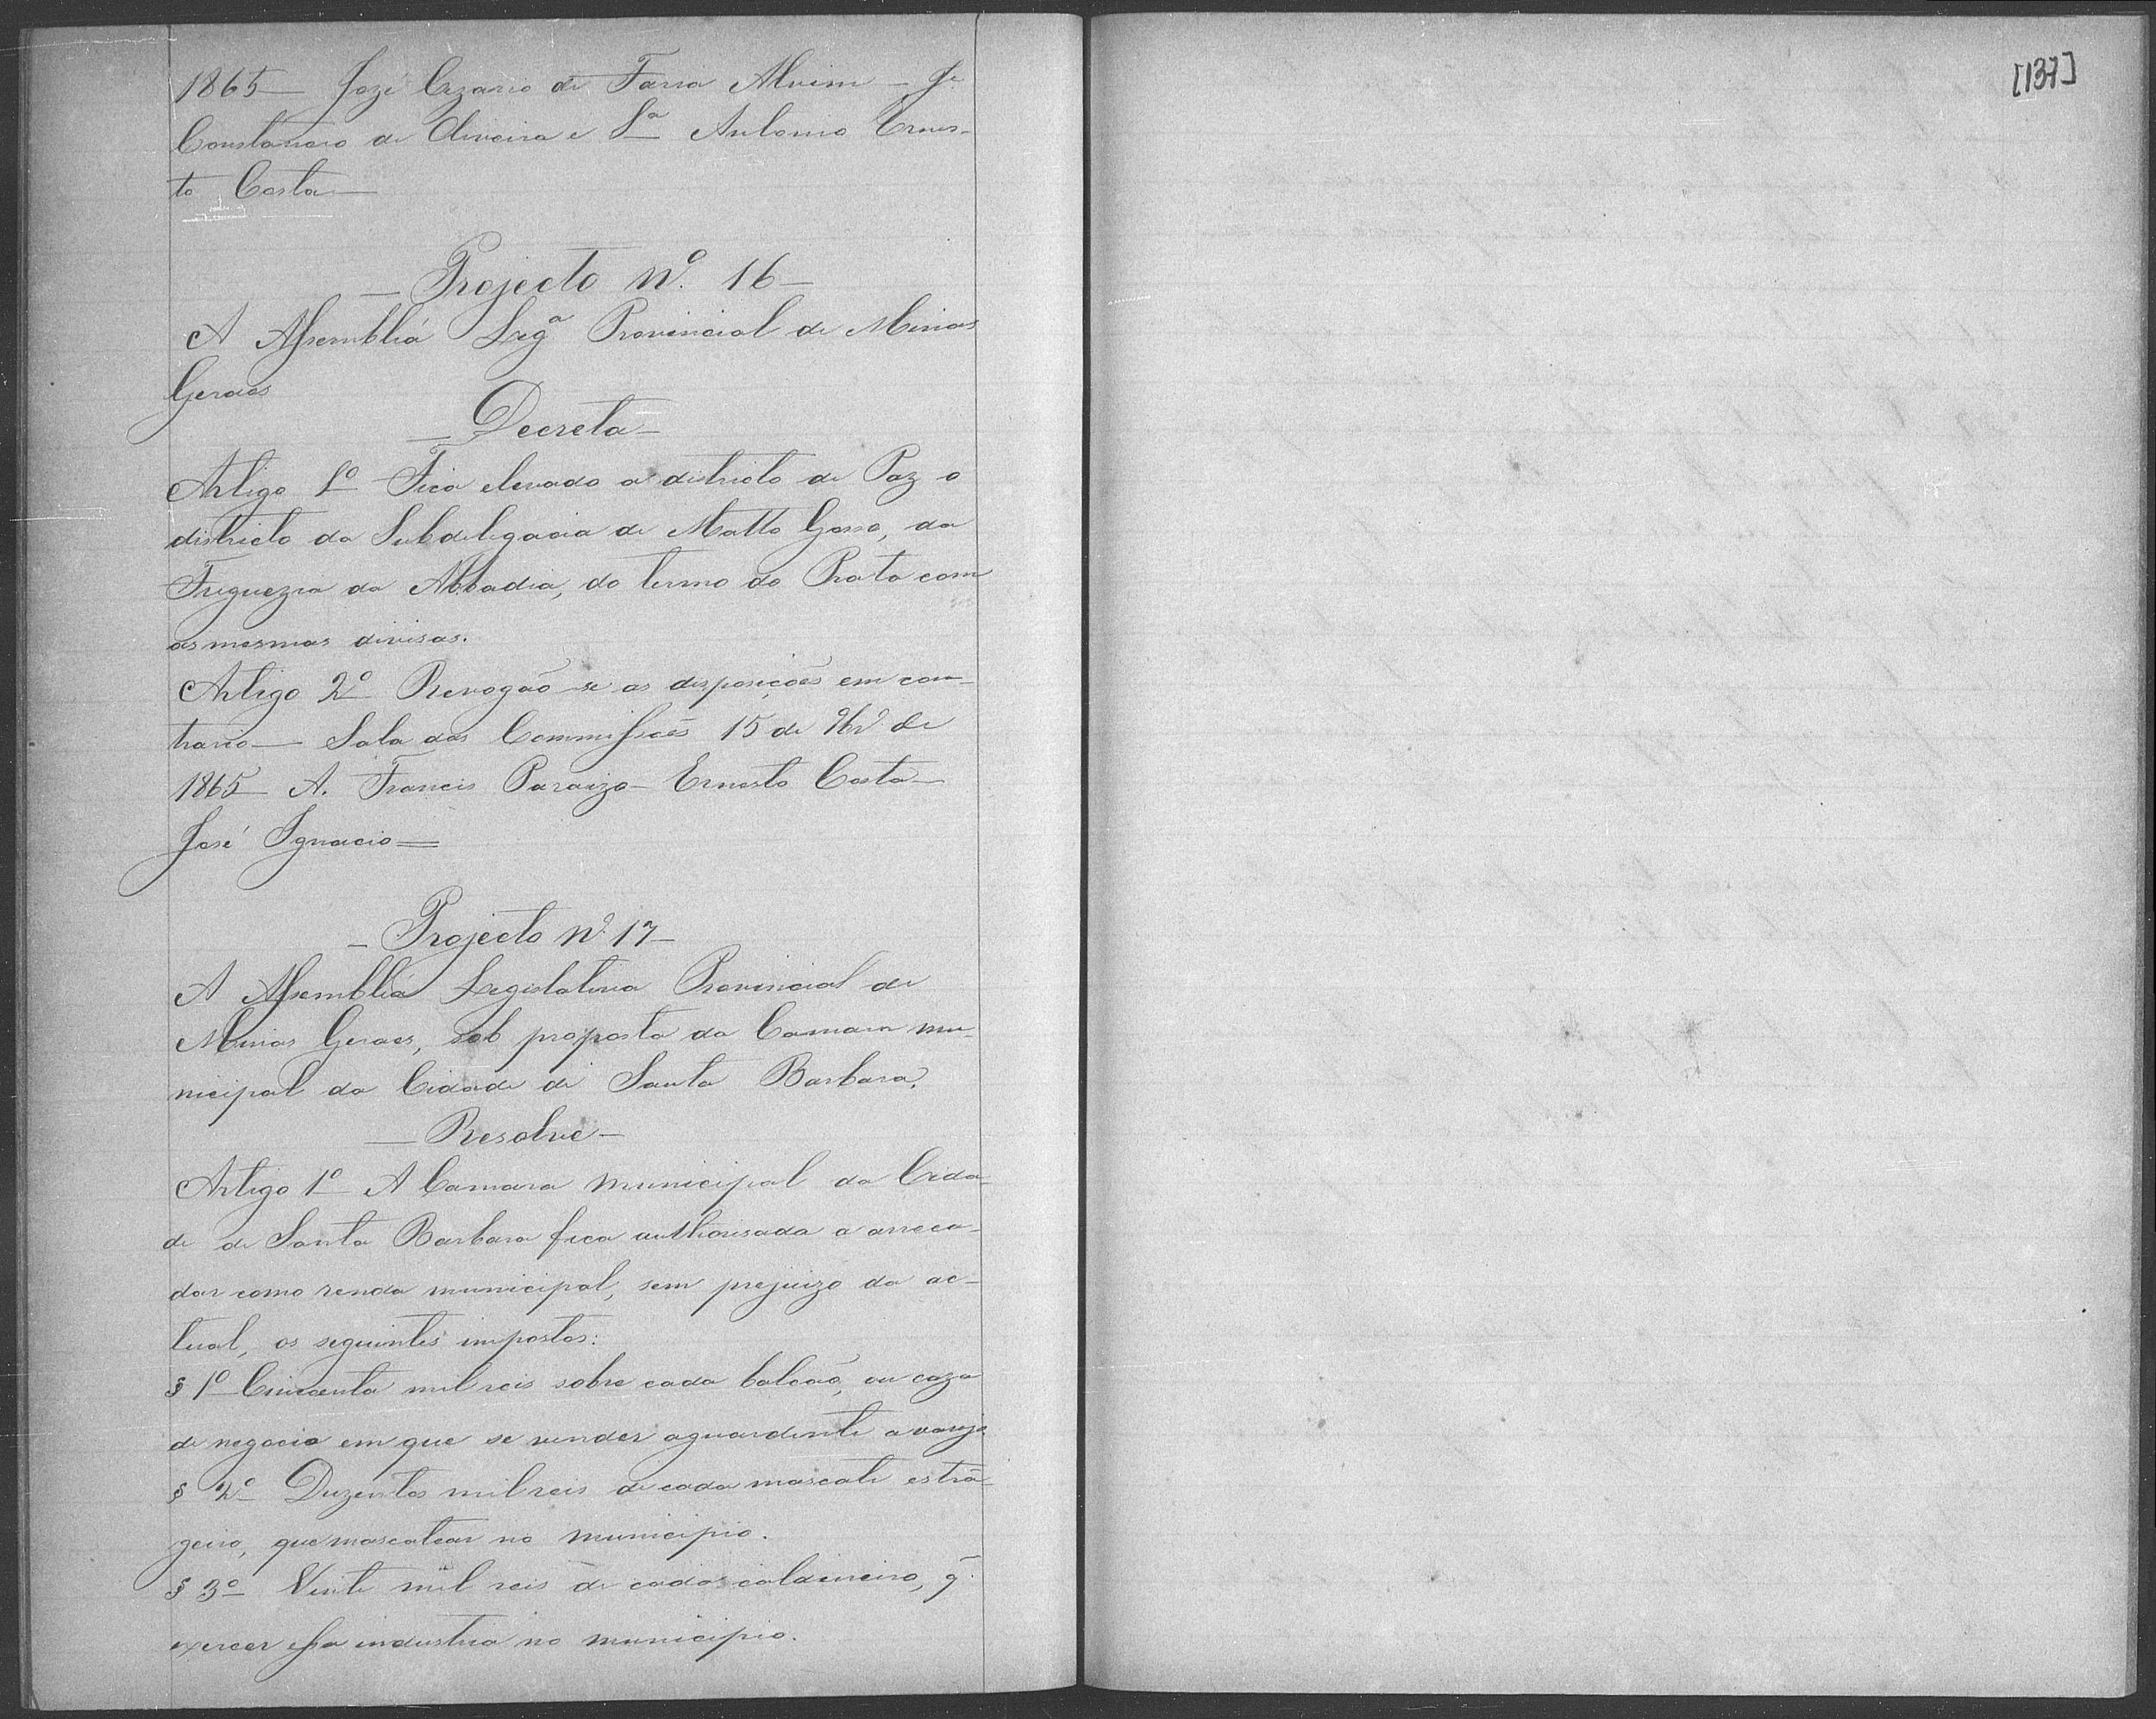 1865 — José Cezario de Faria Alvim — Je
Constancio de Oliveira e Sa Antonio Ernes-
to Costa —
— Projecto No. 16 —
A Assembléa Lega Provincial de Minas
Geraes
— Decreta —
Artigo 1o Fica elevado a districto de Paz o
districto da Subdelegacia de Matto Gosso, da
Freguezia da Abbadia, do termo do Prata com
as mesmas divisas.
Artigo 2o Revogão se as disposições em con-
trario — Sala das Commissões 15 de 9bro de
1865 — A. Francis Paraizo — Ernesto Costa —
José Ignacio =
— Projecto No 17 —
A Assembléa Legislativa Provincial de
Minas Geraes, sob proposta da Camara mu-
nicipal da Cidade de Santa Barbara.
— Resolve —
Artigo 1o — A Camara municipal da Cida-
de de Santa Barbara fica authorisada a arreca-
dar como renda municipal, sem prejuizo da ac-
tual, os seguintes impostos:
§ 1o Cincoenta mil reis sobre cada balcão, ou caza
de negocio em que se vender aguardente a varejo
§ 2o Duzentos mil reis de cada mascate estrã-
geiro, que mascatear no municipio.
§ 3o Vinte mil reis de cada caldeireiro, q̃
exercer essa industria no municipio.
[137]